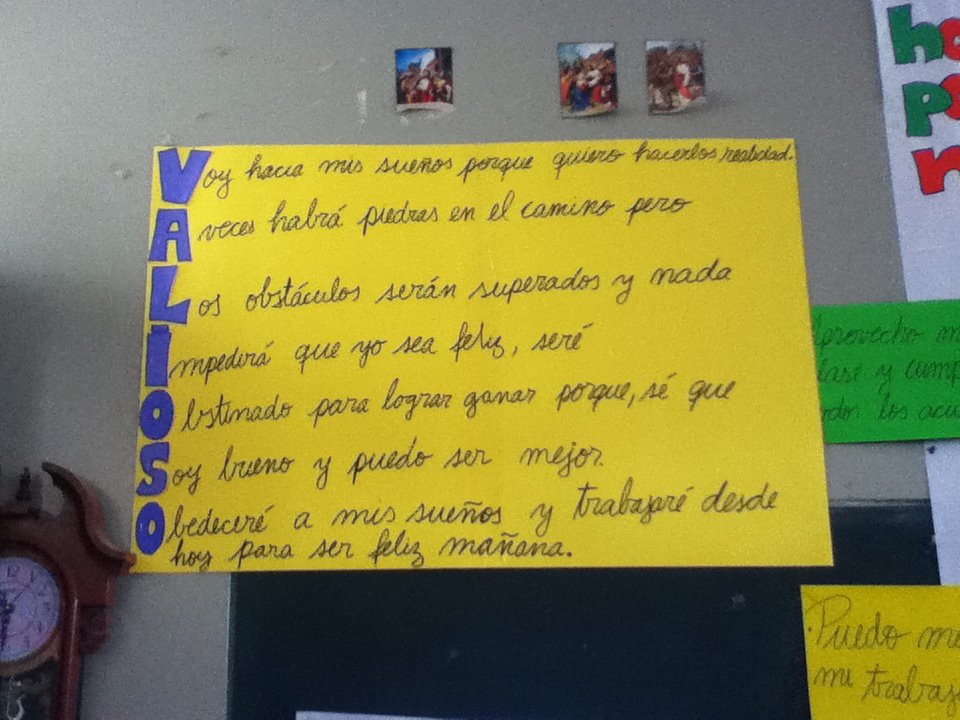 Voy hacia mis sueños porque quiero hacerlos realidad.
A veces habrá piedras en el camino pero
Los obstáculos serán superados y nada
Impedirá que yo sea feliz, seré
Obstinado para lograr ganar porque, sé que
Soy bueno y puedo ser mejor.
Obedeceré a mis sueños y trabajaré desde
hoy para ser feliz mañana.
Aprovecho
y
los
Puedo
mi